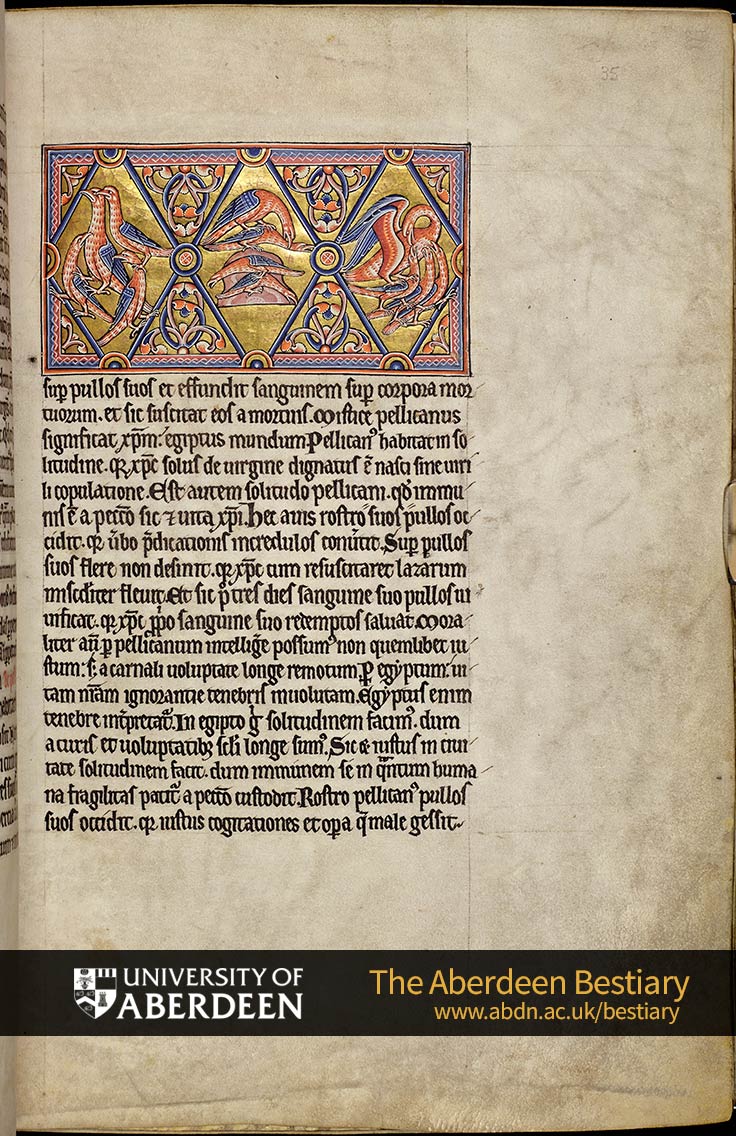 35
sup pullos suos et effundit sanguinem sup corpora mor
tuorum. et sic suscitat eos a mortuis. Mistice pellicanus
significat xpm: egiptus mundum Pellican᾽ habitat in so
litudine. qr xpc solus de uirgine dignatus ē nasci sine uiri
li copulatione. Est autem solitudo pellicani. qd inmu
nis ē a pecco sic ⁊ uita xpi. Hec auis rostro suos pullos oc
cidit. qr ūbo p̄dicationis incredulos conūtit. Sup pullos
suos flere non desinit. qr xpc cum resuscitaret lazarum
misc̄diter fleuit. Et sic p tres dies sanguine suo pullos ui
uificat. qr xpc ꝓpo sanguine suo redemptos saluat. Mora
liter aū p pellicanum intelliḡe possum᾽ non quemlibet iu
stum: s; a carnali uoluptate longe remotum. P egyptum: ui
tam nr̄am ignorantie tenebris inuolutam. Egyptus enim
tenebre int̄pretat᾽. In egipto g̊ solitudinem facim᾽. dum
a curis et uoluptatibȝ scl̄i longe sum᾽. Sic ⁊ iustus in ciui
tate solitudinem facit. dum inmunem se in q̄ntum huma
na fragilitas patit᾽ a pecco custodit. Rostro pellican᾽ pullos
suos occidit. qr iustus cogitationes et opa q̄ male gessit.
UNIVERSITY OF
ABERDEEN
The Aberdeen Bestiary
www.abdn.ac.uk/bestiary